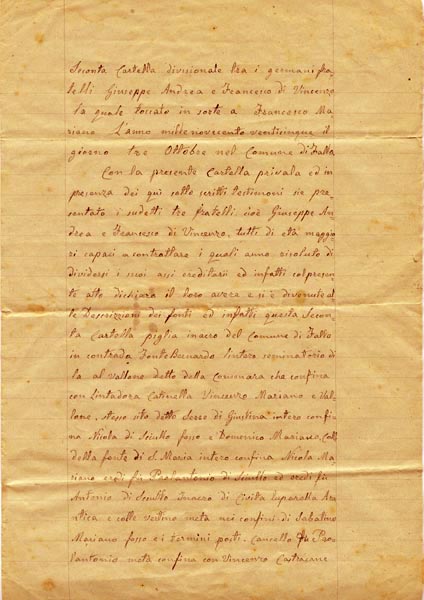 Seconta Cartella divisionale tra i germani fra-
telli Giuseppe Andrea e Francesco di Vincenzo
la quale toccato in sorte a Francesco Ma
riano L'anno millenovecento venticinque il
giorno tre Ottobre nel Comune di Fallo
Con la presente Cartella privata ed in
presenza dei qui sotto scritti testimoni sie pre-
sentato i sudetti tre fratelli cioè Giuseppe An
drea e Francesco di Vincenzo, tutti di età maggio
ri capaci a contrattare i quali anno risoluto di
dividersi i suoi assi ereditarii ed infatti col presen
te atto dichiara il loro avere e si è divenuto al
le Descrizzioni dei fonti ed infatti questa Secon
ta Cartella piglia in acro del Comune di Fallo
in contrada Fonte Bernardo l'intero seminatorio di
la al vallone detto della che confina
con Vincenzo Mariano e Val
lone, stesso sito detto Serro di Giustina intero confi
na Nicola di Sciullo fosso e Domenico Mariano, Coll
della fonte di S. Maria intero confina Nicola Ma
riano eredi fù Prolantonio di Sciullo ed eredi fù
Antonio di Sciullo In acro di Civita luparella An
tica e colle vertino metà nei confini di Sabatino
Mariano fosso e i termini posti. Cancello fù Pro
lantonio metà confina con Vincenzo Castracane